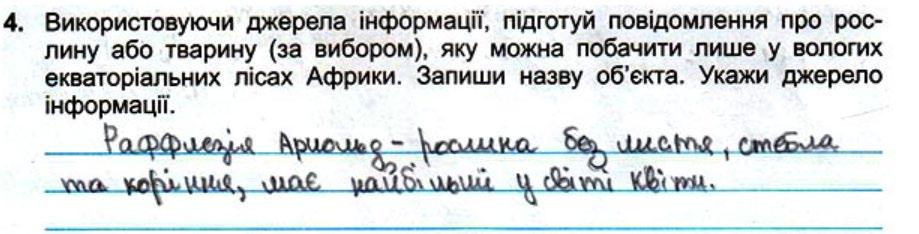 4. Використовуючи джерела інформації, підготуй повідомлення про рос-
лину або тварину (за вибором), яку можна побачити лише у вологих
екваторіальних лісах Африки. Запиши назву об'єкта. Укажи джерело
інформації.
Раффлезія Арнольд - рослина без листя, стебла
та коріння, має найбільші у світі квіти.